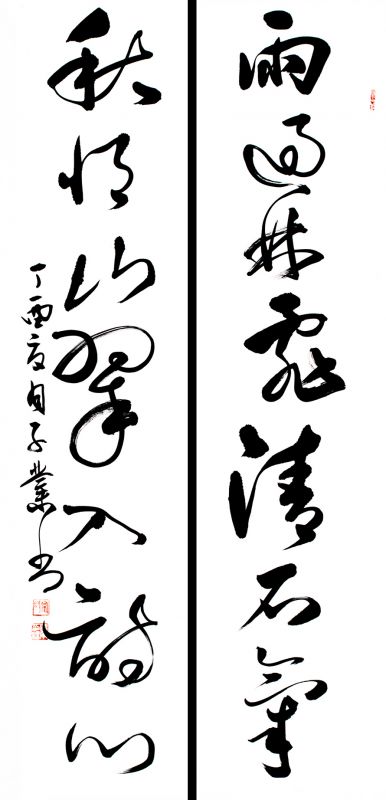 雨過林霏清石氣
秋将山翠入詩心
丁酉夏月子業书